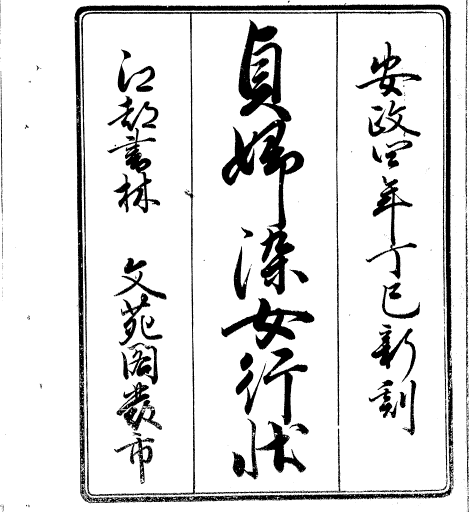 安政四年丁巳新刻
貞婦染女行状
江都書林 文苑閣發市